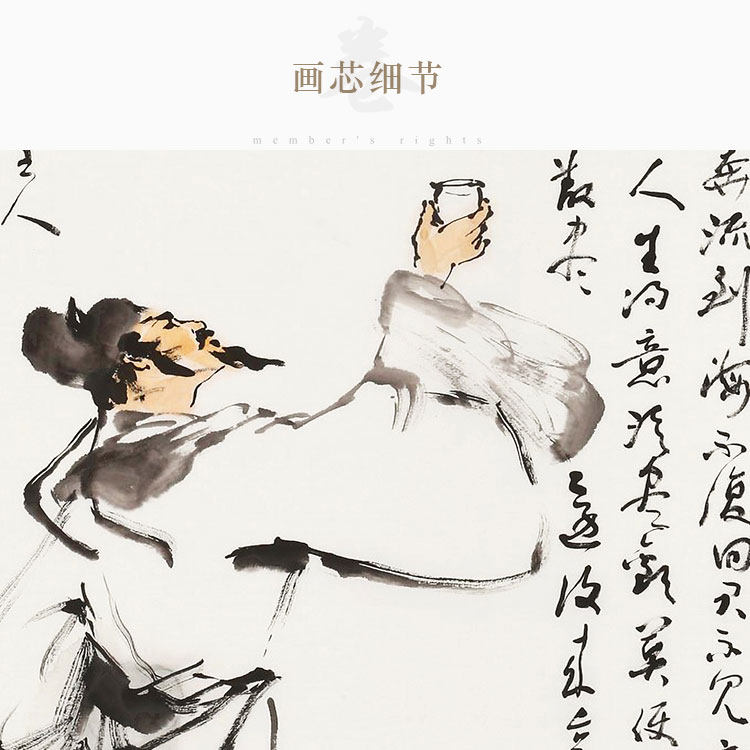 卷
画芯细节
member's rights
奔流到海不復回君不見
人生得意須盡歡莫使
散盡
還復来
主人